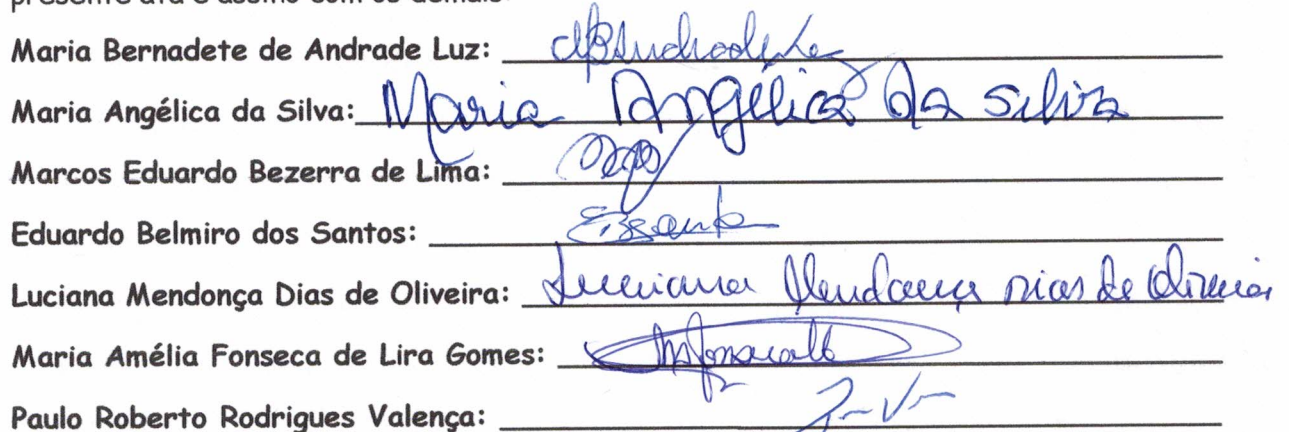 presente ata e assino com os demais.
Maria Bernadete de Andrade Luz: MBAndradeLuz
Maria Angélica da Silva: Maria Angélica da Silva
Marcos Eduardo Bezerra de Lima:
Eduardo Belmiro dos Santos: EBSantos
Luciana Mendonça Dias de Oliveira: Luciana Mendonça Dias de Oliveira
Maria Amélia Fonseca de Lira Gomes:
Paulo Roberto Rodrigues Valença: